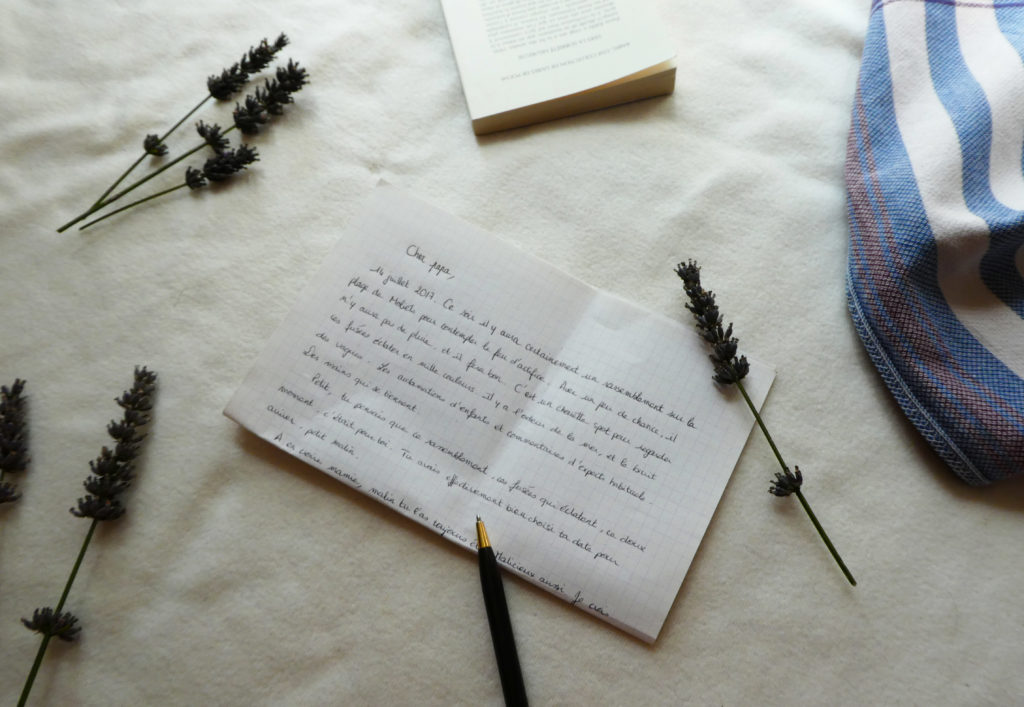 Cher papa,
14 juillet 2017. Ce soir il y aura certainement un rassemblement sur la
plage du pour contempler le feu d'artifice. Avec un peu de chance, il
n'y aura pas de pluie, et il fera bon. C'est un chouette spot pour regarder
ces fusées éclater en mille couleurs, il y a l'odeur de la mer, et le bruit
des vagues. Les automations d'enfants et commentaires d'experts habituels.
Des mains qui se tiennent.
Petit, tu pensais que ce rassemblement, ces fusées qui éclatent, ce doux
moment, c'était pour toi. Tu avais effectivement bien choisi ta date pour
arriver, petit malin.
A en croire mamie, malin tu l'as toujours été. Malicieux aussi. Je crois